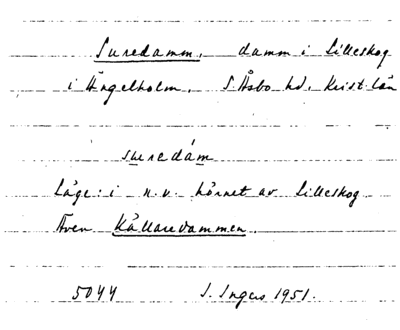 Suredamm, damm i Lilleskog
i Ängelholm, S. Åsbo hd, Krist. län
suredám
Läge: i n.v. hörnet av Lilleskog
Även Källaredammen.
5044 I. Ingers 1951.